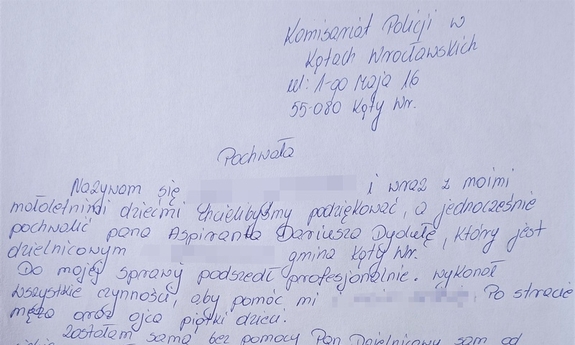 Komisariat Policji w
Kątach Wrocławskich
ul: 1-go Maja 16
55-080 Kąty Wr.
Pochwała
Nazywam się i wraz z moimi
małoletnimi dziećmi chcielibyśmy podziękować, a jednocześnie
pochwalić pana Aspiranta Dariusza Dydułę, który jest
dzielnicowym gmina Kąty Wr.
Do mojej sprawy podszedł profesjonalnie. wykonał
wszystkie czynności, aby pomóc mi i Po stracie
męża oraz ojca piątki dzieci.
Zostałam sama bez pomocy Pan Dzielnicowy sam od